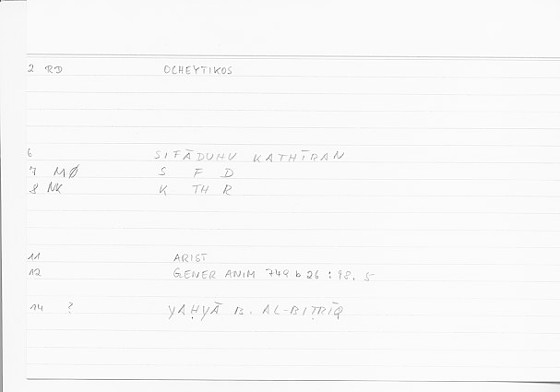 2 RD OCHEYTIKOS
6 SIFĀDUHU KATHĪRAN
7 MØ S F D
8 NK K TH R
11 ARIST
12 GENER ANIM 749 b 26 : 98. 5
14 ? YAḤYĀ B. AL-BIṬRĪQ